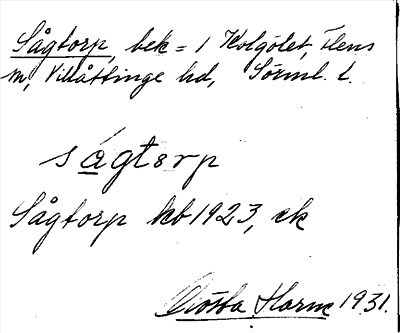 Sågtorp, bek = 1 Kolgölet, Flens
m, Villåttinge hd, Sörml. l.
ságtorp
Sågtorp kb 1923, ek
Gösta Harne 1931.